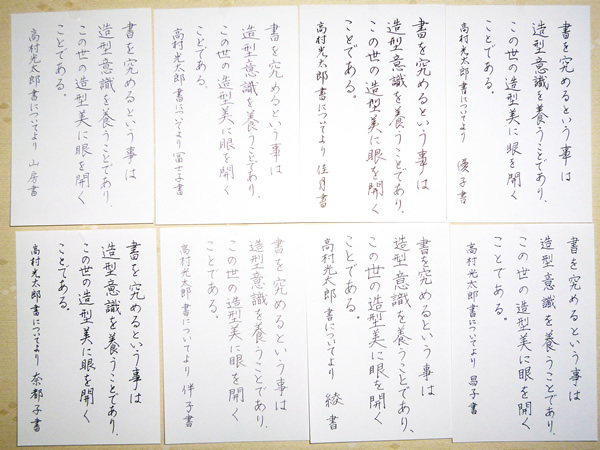 書を究めるという事は
造型意識を養うことであり、
この世の造型美に眼を開く
ことである。
高村光太郎書についてより 優子書
書を究めるという事は
造型意識を養うことであり、
この世の造型美に眼を開く
ことである。
高村光太郎書についてより 佳月書
書を究めるという事は
造型意識を養うことであり、
この世の造型美に眼を開く
ことである。
高村光太郎書についてより 冨士子書
書を究めるという事は
造型意識を養うことであり、
この世の造型美に眼を開く
ことである。
高村光太郎書についてより 山房書
書を究めるという事は
造型意識を養うことであり、
この世の造型美に眼を開く
ことである。
高村光太郎書についてより 昌子書
書を究めるという事は
造型意識を養うことであり、
この世の造型美に眼を開く
ことである。
高村光太郎 書についてより 綾書
書を究めるという事は
造型意識を養うことであり、
この世の造型美に眼を開く
ことである。
高村光太郎書についてより 伴子書
書を究めるという事は
造型意識を養うことであり、
この世の造型美に眼を開く
ことである。
高村光太郎 書についてより 奈都子書